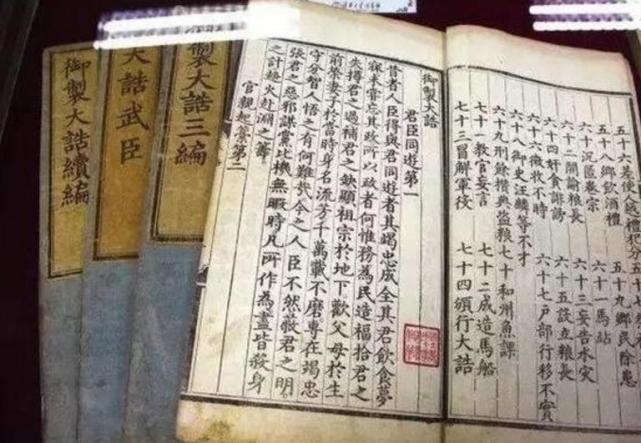 五十六差使人違禮犯分
五十八鄉飲酒禮 五十九鄉民除患
六十沉匿卷宗 六十一馬站
六十二開諭糧長 六十三妄告水災
六十四奸貪誹謗 六十五設立糧長
六十六徵收不時 六十七戶部行移不實
六十八御史汪麟等不才
六十九刑餘攢典盜糧 七十和州魚課
七十一教官妄言 七十二成造馬船
七十三冒解軍役 七十四頒行大誥
御製大誥
君臣同遊第一
昔者人臣得與君同遊者其竭忠成全其君飲食夢
寐未嘗忘其政所以政者何惟務為民造福拾君之
失撙君之過補君之缺顯祖宗於地下歡父母於生
前榮妻子於當時身名流芳千萬載不磨專在竭忠
守分智人悟之有何難哉今之人臣不然蔽君之明
張君之惡邪謀黨比機無暇時凡所作為盡皆殺身
之計趨火赴淵之籌
官親起藁第二
御製大誥三編
大誥武臣
御製大誥續編